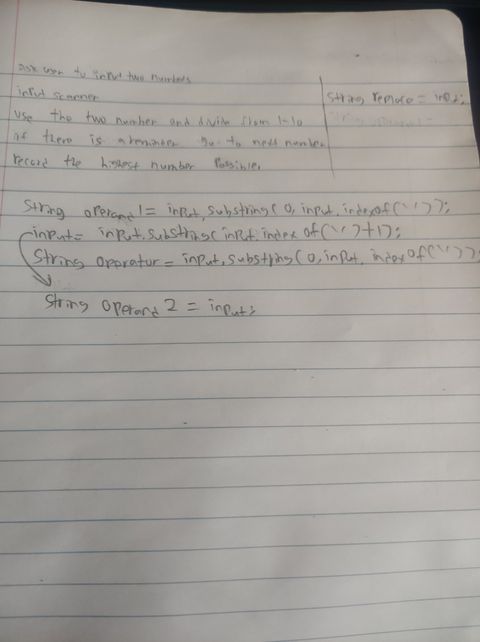 Ask user to input two numbers
input scanner
use the two number and divide from 1-10
if there is a reminder go to next number
record the highest number possible.
String replace = input;
String operand 1 = input, substring( 0, input, indexof(" "));
input= input, substring( input, index of(" ")+1);
String operator = input, substring( 0, input, index of(" "));
String operand 2 = input;